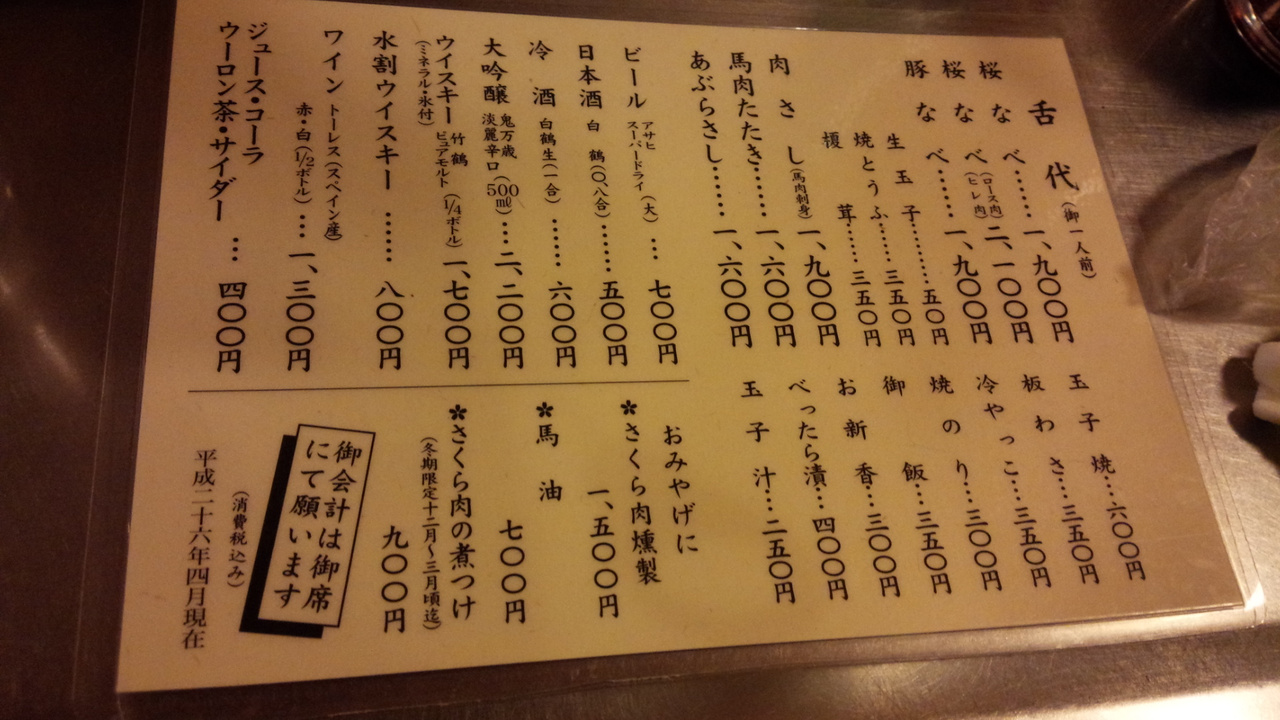 舌代(御一人前)
桜なべ……一、九〇〇円
桜なべ(ロース肉)(ヒレ肉)二、一〇〇円
豚なべ……一、九〇〇円
生玉子………五〇円
焼とうふ……三五〇円
榎茸……三五〇円
肉さし(馬肉刺身)一、九〇〇円
馬肉たたき……一、六〇〇円
あぶらさし……一、六〇〇円
玉子焼…六〇〇円
板わさ…三五〇円
冷やっこ…三五〇円
焼のり…三〇〇円
御飯…三五〇円
お新香…三〇〇円
べったら漬…四〇〇円
玉子汁…二五〇円
ビール アサヒスーパードライ(大)…七〇〇円
日本酒 白鶴(〇八合)……五〇〇円
冷酒 白鶴生(一合)……六〇〇円
大吟醸 鬼万歳淡麗辛口(500㎖)…二、二〇〇円
ウイスキー 竹鶴ピュアモルト(1/4ボトル)一、七〇〇円
(ミネラル・氷付)
水割ウイスキー……八〇〇円
ワイン トーレス(スペイン産)
赤・白(1/2ボトル)…一、三〇〇円
ジュース・コーラ
ウーロン茶・サイダー…四〇〇円
おみやげに
*さくら肉燻製
一、五〇〇円
*馬油
七〇〇円
*さくら肉の煮つけ
(冬期限定十二月〜三月頃迄)
九〇〇円
御会計は御席
にて願います
(消費税込み)
平成二十六年四月現在